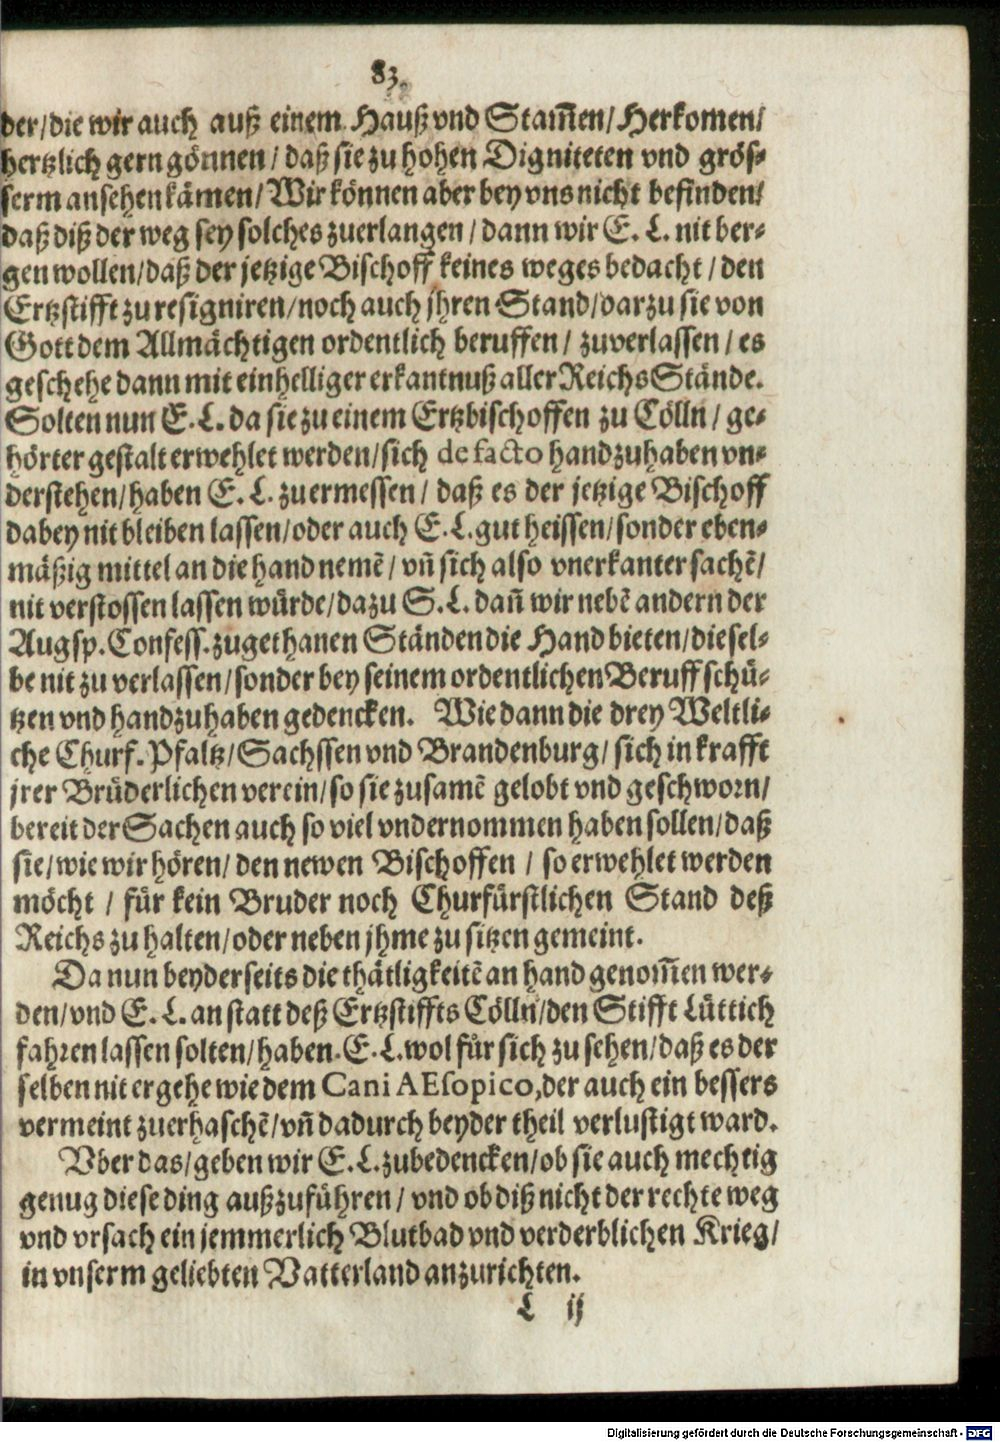 83.
der/die wir auch auß einem Hauß vnd Stam̃en/Herkomen/
hertzlich gern gönnen/daß sie zu hohen Digniteten vnd grös-
serm ansehen kämen/Wir können aber bey vns nicht befinden/
daß diß der weg sey solches zuerlangen/dann wir E. L. nit ber-
gen wollen/daß der jetzige Bischoff keines weges bedacht/den
Ertzstifft zu resigniren/noch auch jhren Stand/darzu sie von
Gott dem Allmächtigen ordentlich beruffen/zuverlassen/es
geschehe dann mit einhelliger erkantnuß aller Reichs Stände.
Solten nun E. L. da sie zu einem Ertzbischoffen zu Cölln/ge-
hörter gestalt erwehlet werden/sich de facto handzuhaben vn-
derstehen/haben E. L. zuermessen/daß es der jetzige Bischoff
dabey nit bleiben lassen/oder auch E. L. gut heissen/sonder eben-
mäßig mittel an die hand nemẽ/vñ sich also vnerkanter sachẽ/
nit verstossen lassen würde/dazu S. L. dañ wir nebẽ andern der
Augsp. Confess. zugethanen Ständen die Hand bieten/diesel-
be nit zu verlassen/sonder bey seinem ordentlichen Beruff schü-
tzen vnd handzuhaben gedencken. Wie dann die drey Weltli-
che Churf. Pfaltz/Sachssen vnd Brandenburg/sich in krafft
jrer Brüderlichen verein/so sie zusamẽ gelobt vnd geschworn/
bereit der Sachen auch so viel vndernommen haben sollen/daß
sie/wie wir hören/den newen Bischoffen/so erwehlet werden
möcht/für kein Bruder noch Churfürstlichen Stand deß
Reichs zu halten/oder neben jhme zu sitzen gemeint.
Da nun beyderseits die thätligkeitẽ an hand genom̃en wer-
den/vnd E. L. an statt deß Ertzstiffts Cölln/den Stifft Lüttich
fahren lassen solten/haben E. L. wol für sich zu sehen/daß es der
selben nit ergehe wie dem Cani AEsopico, der auch ein bessers
vermeint zuerhaschẽ/vñ dadurch beyder theil verlustigt ward.
Vber das/geben wir E. L. zubedencken/ob sie auch mechtig
genug diese ding außzuführen/vnd ob diß nicht der rechte weg
vnd vrsach ein jemmerlich Blutbad vnd verderblichen Krieg/
in vnserm geliebten Vatterland anzurichten.
L ij
Digitalisierung gefördert durch die Deutsche Forschungsgemeinschaft - DFG